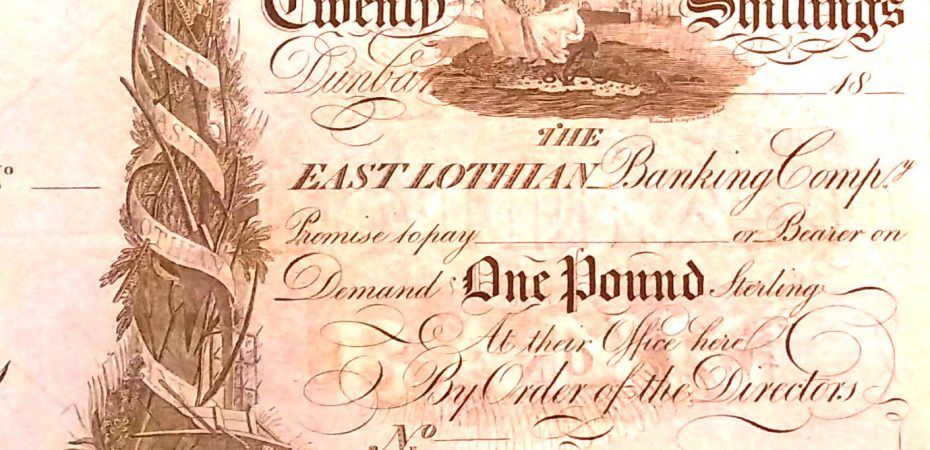 Twenty Shillings
Dunbar 18
THE
EAST LOTHIAN Banking Compy
Promise to pay or Bearer on
Demand One Pound Sterling
At their Office here
By Order of the Directors
No
No